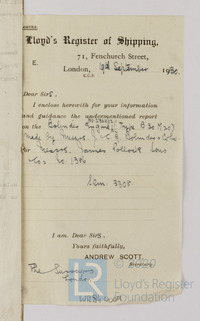 Lloyd's Register of Shipping,
71, Fenchurch Street,
E.
London, 19th September 1930.
E.C.3
Dear Sirs,
I enclose herewith for your information
and guidance the undermentioned report
on the Bolinder Engine Type
made by Messrs. J & C G Bolinders Co
for Messrs. James Pollock Sons
& Co. No 1386
3308
I am, Dear Sirs,
Yours faithfully,
ANDREW SCOTT,
Secretary.
The Surveyors
London
LR
Lloyd's Register
Foundation